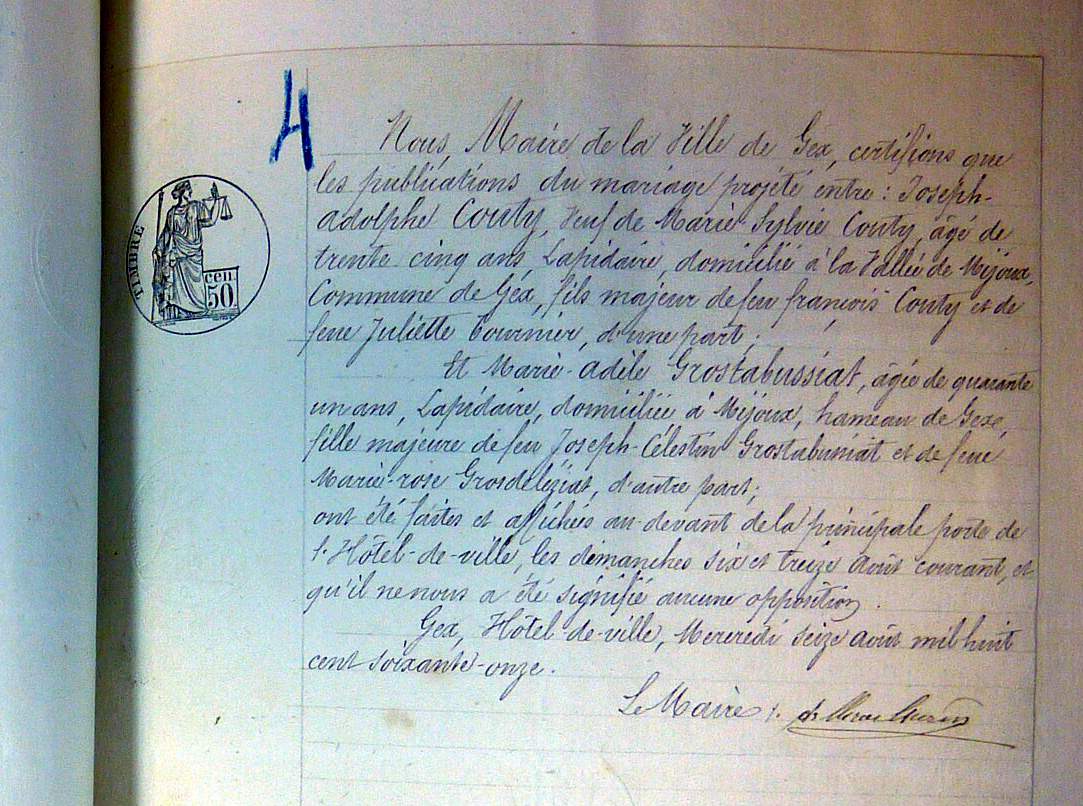 4
Nous, Maire de la Ville de Gex, certifions que
les publications du mariage projeté entre : Joseph-
adolphe Couty, Veuf de Marie Sylvie Couty, âgé de
trente cinq ans Lapidaire, domicilié à la Vallée de Mijoux,
Commune de Gex, fils majeur de feu françois Couty et de
feue Juliette Tournier, d'une part ;
Et Marie-adèle Grostabussiat, âgée de quarante
un ans, Lapidaire, domiciliée à Mijoux, hameau de Gex,
fille majeure de feu Joseph-Célestin Grostabussiat et de feue
Marie-rose Grosdeléziat, d'autre part ;
ont été faites et affichées au-devant de la principale porte de
l'Hôtel-de-ville, les dimanches six et treize août courant, et
qu'il ne nous a été signifié aucune opposition.
Gex, Hôtel-de-ville, Mercredi seize août mil huit
cent soixante-onze.
Le Maire
TIMBRE
cen
50